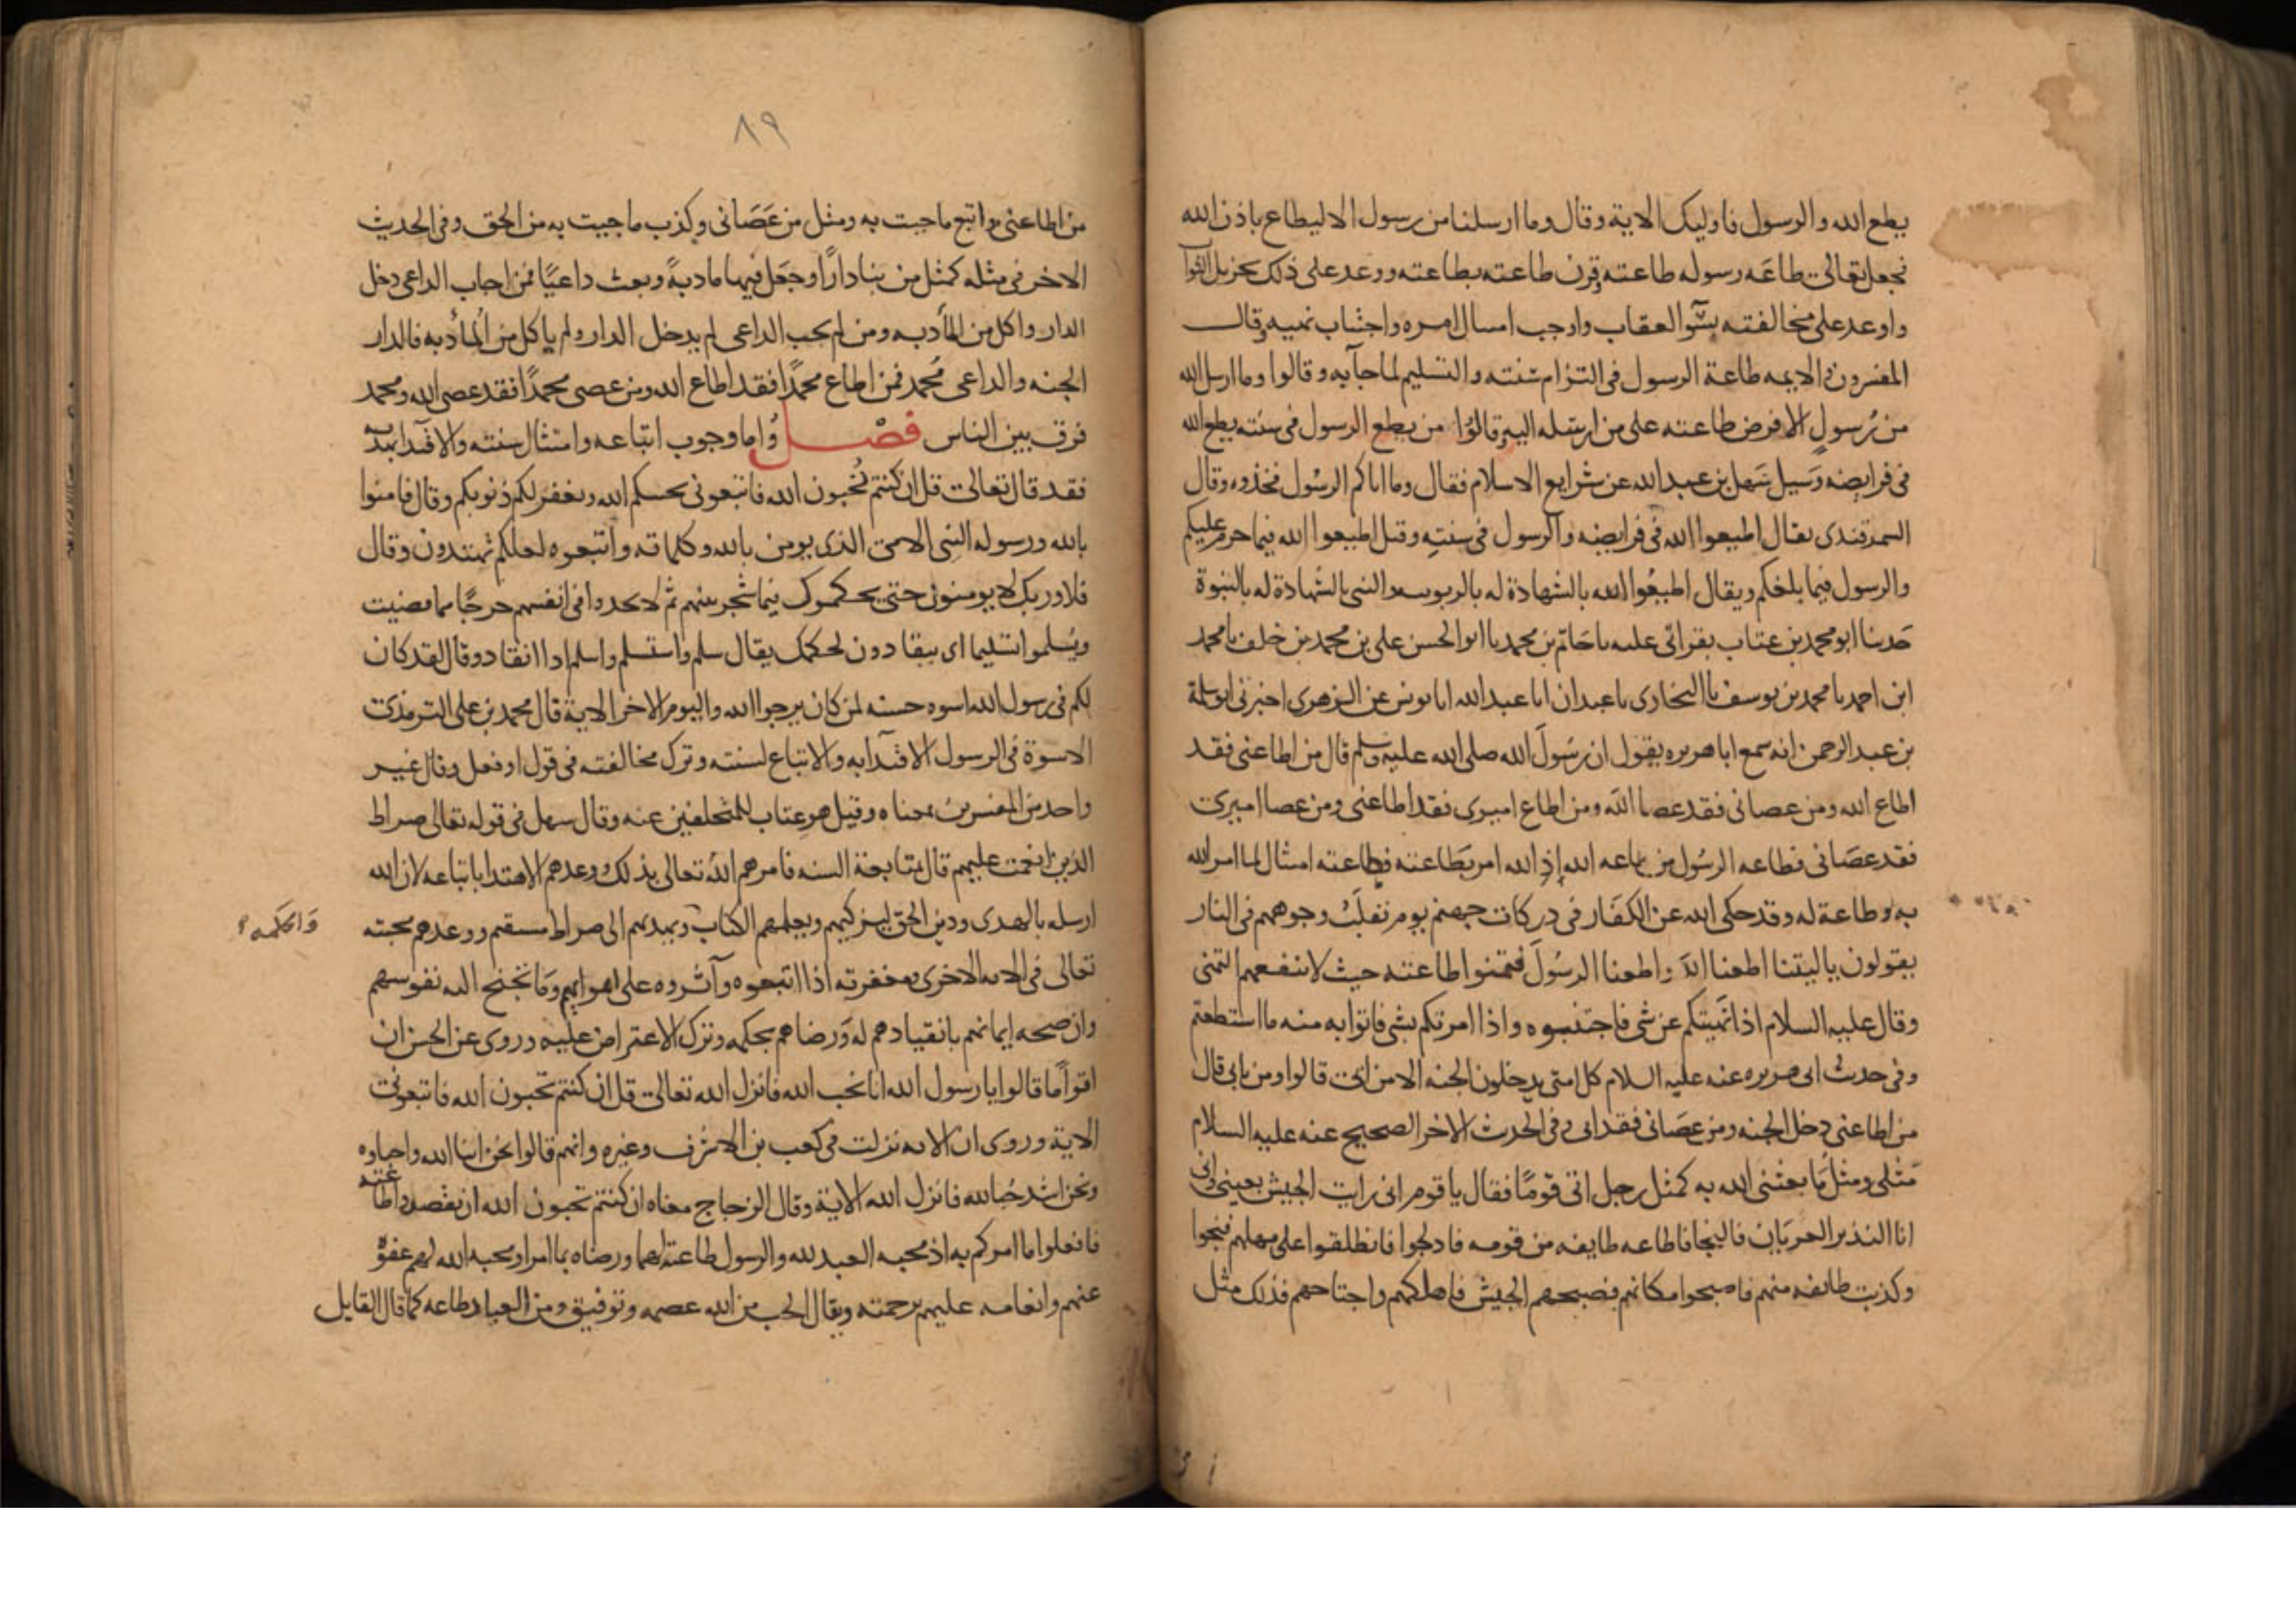 يطع الله والرسول فاوليك الاية وقال وما ارسلنا من رسول الا ليطاع باذن الله
فجعل تعالى طاعه رسوله طاعته وقرن طاعته بطاعته ووعد على ذلك بجزيل الثواب
واوعد على مخالفته بسُّو العقاب واوجب امسال امره واجتناب نهيه وقال
المفسرون والايمه طاعة الرسول فى التزام سنته والتسليم لما جآ به وقالوا وما ارسل الله
من رُسولٍ الا فرض طاعته على من ارسله اليهم وقالوُا من يطع الرسول فى سنته يطع الله
فى فرايضه وسَيل سَهل بن عبد الله عن شرايع الاسلام فقال وما اتاكم الرسُول فخذوه وقال
السمرقندى يقال اطيعوا الله فى فرايضه والرسول فى سنتِه وقيل اطيعوا الله فيما حرم عليكم
والرسول فيما بلغكم ويقال اطيعُوا الله بالشهادة له بالربوبيه والنبى بالشهادة له بالنبوة
حَدثنا ابو محمد بن عتاب بقراتى عليه نا حَاتم بن محمد نا ابو الحسن على بن محمد بن خلف نا محمد
ابن احمد نا محمد بن يوسف نا البخارى نا عبدان انا عبد الله انا يونس عن الزهرى اخبرنى ابو سلمة
بن عبد الرحمن انه سمع ابا هريره يقول ان رسُولَ الله صلى الله عليه وسلم قال من اطاعنى فقد
اطاع الله ومن عصانى فقد عصا اللَه ومن اطاع اميرى فقد اطاعنى ومن عصا اميرى
فقد عصَانى فطاعه الرسُول من طاعه الله اذ الله امر بطَاعته فطاعته امتثال لما امر الله
به وطاعة له وقد حكى الله عن الكفَار فى دركات جهنم يوم تقلَبُ وجوههم فى النار
يقولون ياليتنا اطعنا اللهَ واطعنا الرسُولَ فتمنوا طاعته حيث لا ينفعهم التمنى
وقال عليه السلام اذا نَهيتكم عن شى فاجتنبوه واذا امرتكم بشى فاتوا به منه ما استطعتم
وفى حديث ابى هريره عنه عليه السلام كل امتى يدخلون الجنه الا من ابى قالوا ومن يابى قال
من اطاعنى دخل الجنه ومن عصَانى فقد ابى وفى الحديث الاخر الصحيح عنه عليه السلام
مَثلى ومثلُ مَا بعثنى الله به كمثل رجل اتى قومًا فقال يا قوم انى رايت الجيش بعينى وانى
انا النذير العريَان فالنجا فاطاعه طايفه من قومه فادلجوا فانطلقوا على مهلهم فنجوا
وكذبت طائفه منهم فاصبحوا مكانهم فصبحهم الجيش فاهلكهم واجتاحهم فذلك مثل
٨٩
من اطاعنى واتبع ما جيت به ومثل من عَصَانى وكذب ما جيت به من الحق وفى الحديث
الاخر فى مثله كمثل من بنا دارًا وجعَل فيها مادبةً وبعث داعيًا فمن اجاب الداعى دخل
الدار واكل من المأدبه ومن لم يجب الداعى لم يدخل الدار ولم ياكل من المأدبه فالدار
الجنه والداعى مُحمد فمن اطاع محمدًا فقد اطاع الله ومن عصى محمدًا فقد عصى الله ومحمد
فرق بين الناس فصْل وُاما وجوب اتباعه وامتثال سنته والاقتدا بهديه
فقد قال تعالى قل ان كنتم تُحبون الله فاتبعونى يحببكم الله ويغفر لكم ذنوبكم وقال فامنوا
بالله ورسوله النبى الامى الذى يومن بالله وكلماته واتبعوه لعلكم تهتدون وقال
فلا وربك لا يومنون حتى يحكموك فيما شجر بينهم ثم لا يجدوا فى انفسهم حرجًا مما قضيت
ويُسلموا تسليما اى ينقادون لحكمك يقال سلم واستسلم واسلم اذا انقاد وقال لقد كان
لكم فى رسول الله اسوه حسنه لمن كان يرجوا الله واليوم الاخر الاية قال محمد بن على الترمذى
الاسوة فى الرسول الاقتدآ به والاتباع لسنته وترك مخالفته فى قول او فعل وقال غير
واحد من المفسرين بمعناه وقيل هو عتاب للمتخلفين عنه وقال سهل فى قوله تعالى صراط
الذين انعمت عليهم قال بمتابعة السنه فامرهم اللهُ تعالى بذلك ووعدهم الاهتدا باتباعه لان الله
ارسله بالهدى ودين الحق ليزكيهم ويعلمهم الكتاب ويهديهم الى صراط مستقيم ووعدهم محبته
وَالحكمه
تعالى فى الايه الاخرى ومغفرته اذا اتبعوه وآثروه على اهوايهم وَمَا تجنح اليه نفوسهم
وان صحه ايمانهم بانقيادهم له وَرضاهم بحكمه وترك الاعتراض عليه وروى عن الحسن ان
اقوامًا قالوا يا رسول الله انا نحب الله فانزل الله تعالى قل ان كنتم تحبون الله فاتبعونى
الاية وروى ان الايه نزلت فى كعب بن الاشرف وغيره وانهم قالوا نحن ابنا الله واحباوه
ونحن اشد حُبا لله فانزل الله الاية وقال الزجاج معناه ان كنتم تحبون الله ان تقصدوا طاعته
فافعلوا ما امركم به اذ محبه العبد لله والرسول طاعته لهما ورضاه بما امرا ومحبه الله لهم عفوهُ
عنهم وانعامه عليهم برحمته ويقال الحب من الله عصمه وتوفيق ومن العباد طاعه كما قال القايل